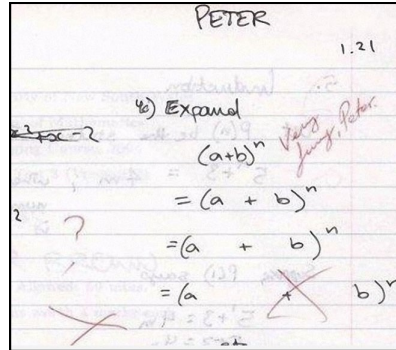 PETER
1.21
x²+x-2
4c) Expand
(a+b)ⁿ
Very
funny, Peter.
= (a + b)ⁿ
2
?
=(a + b)ⁿ
=(a + b)ⁿ